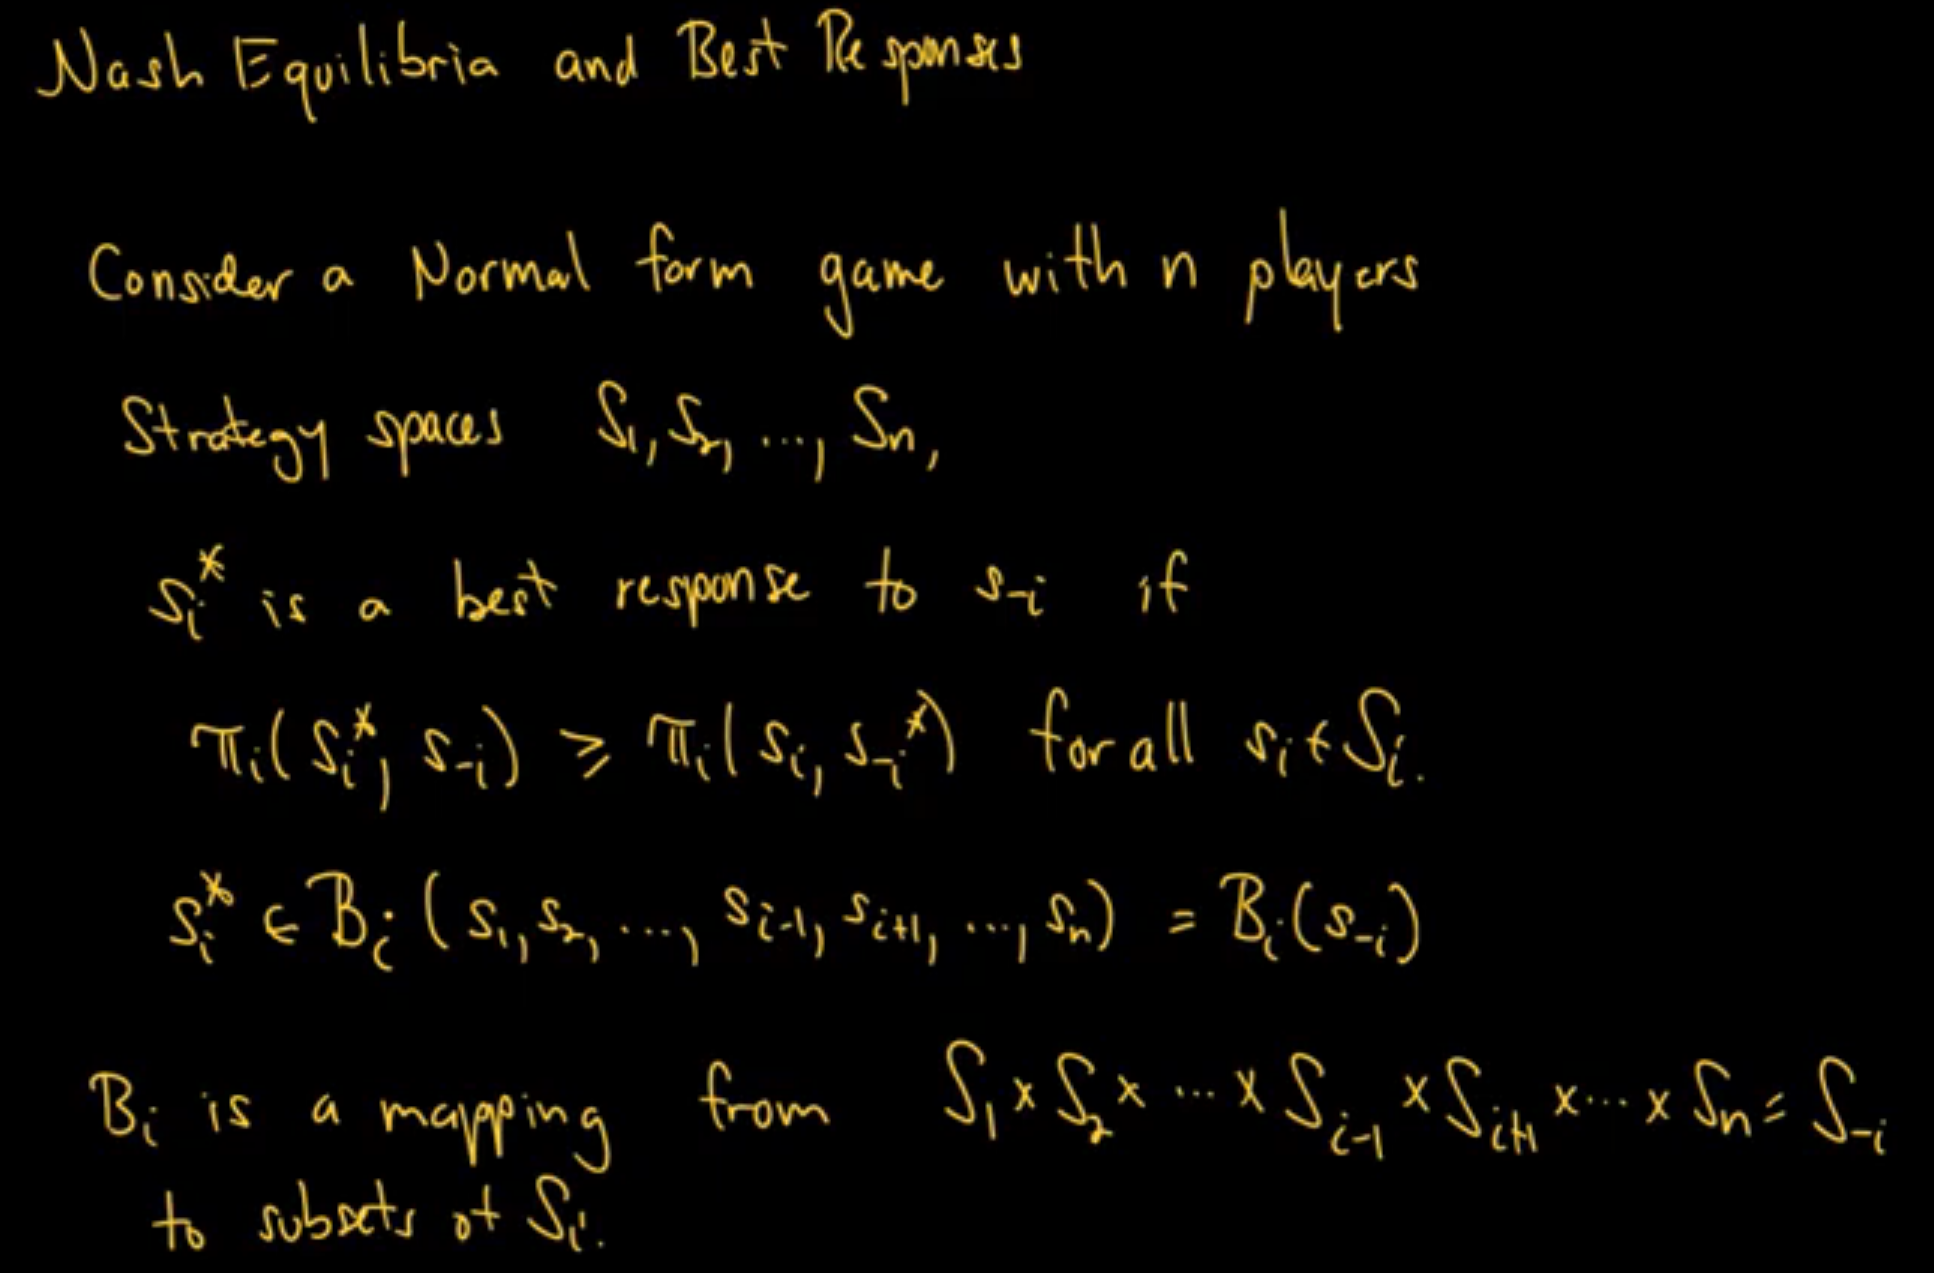 Nash Equilibria and Best Responses
Consider a Normal form game with n players
Strategy spaces S₁, S₂, ..., Sₙ,
sᵢ* is a best response to s₋ᵢ if
πᵢ(sᵢ*, s₋ᵢ) ≥ πᵢ(sᵢ, s₋ᵢ*) for all sᵢ ∈ Sᵢ.
sᵢ* ∈ Bᵢ(s₁, s₂, ..., sᵢ₋₁, sᵢ₊₁, ..., sₙ) = Bᵢ(s₋ᵢ)
Bᵢ is a mapping from S₁ × S₂ × ... × Sᵢ₋₁ × Sᵢ₊₁ × ... × Sₙ = S₋ᵢ
to subsets of Sᵢ.